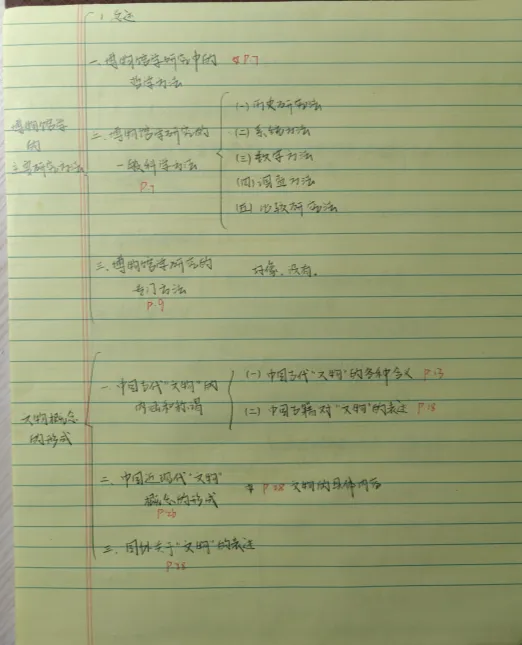 一、博物馆学研究中的 P.7
哲学方法
(一) 历史研究法
博物馆学
的
主要研究方法
二、博物馆学研究的
一般科学方法
P.7
(二) 系统方法
(三) 数学方法
(四) 调查方法
(五) 比较研究法
三、博物馆学研究的
专门方法
P.9
好像、没有。
文物概念
的形成
一、中国古代“文物”的
内涵和称谓
(一) 中国古代“文物”的各种含义 P.13
(二) 中国古籍对“文物”的表述 P.18
二、中国近现代“文物”
概念的形成
P.26
P.28 文物的具体内容
三、国外关于“文物”的表述
P.28